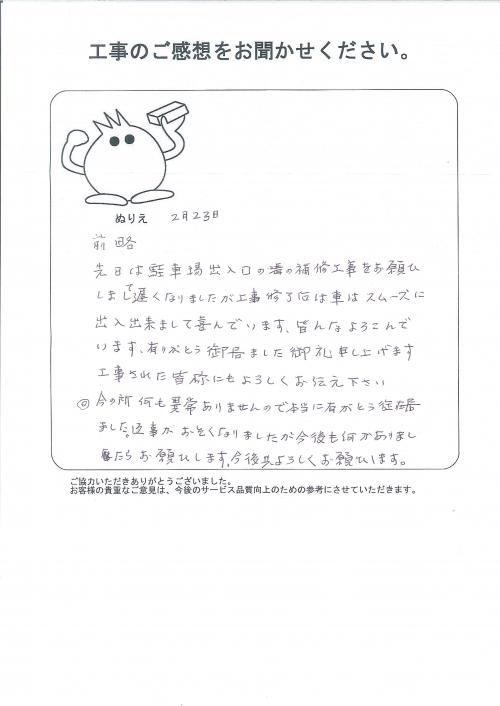 工事のご感想をお聞かせください。
ぬりえ 2月23日
前略
先日は駐車場出入口の溝の補修工事をお願ひ
しまして遅くなりましたが工事修了后は車はスムーズに
出入出来まして喜んでいます、皆んなよろこんで
います、有りがとう御居ました御礼申し上げます
工事された皆様にもよろしくお伝え下さい
◎今の所何も異常ありませんので本当に有がとう御在居
ました。返事がおそくなりましたが今後も何かありまし
たらお願ひします、今後共よろしくお願ひします。
ご協力いただきありがとうございました。
お客様の貴重なご意見は、今後のサービス品質向上のための参考にさせていただきます。